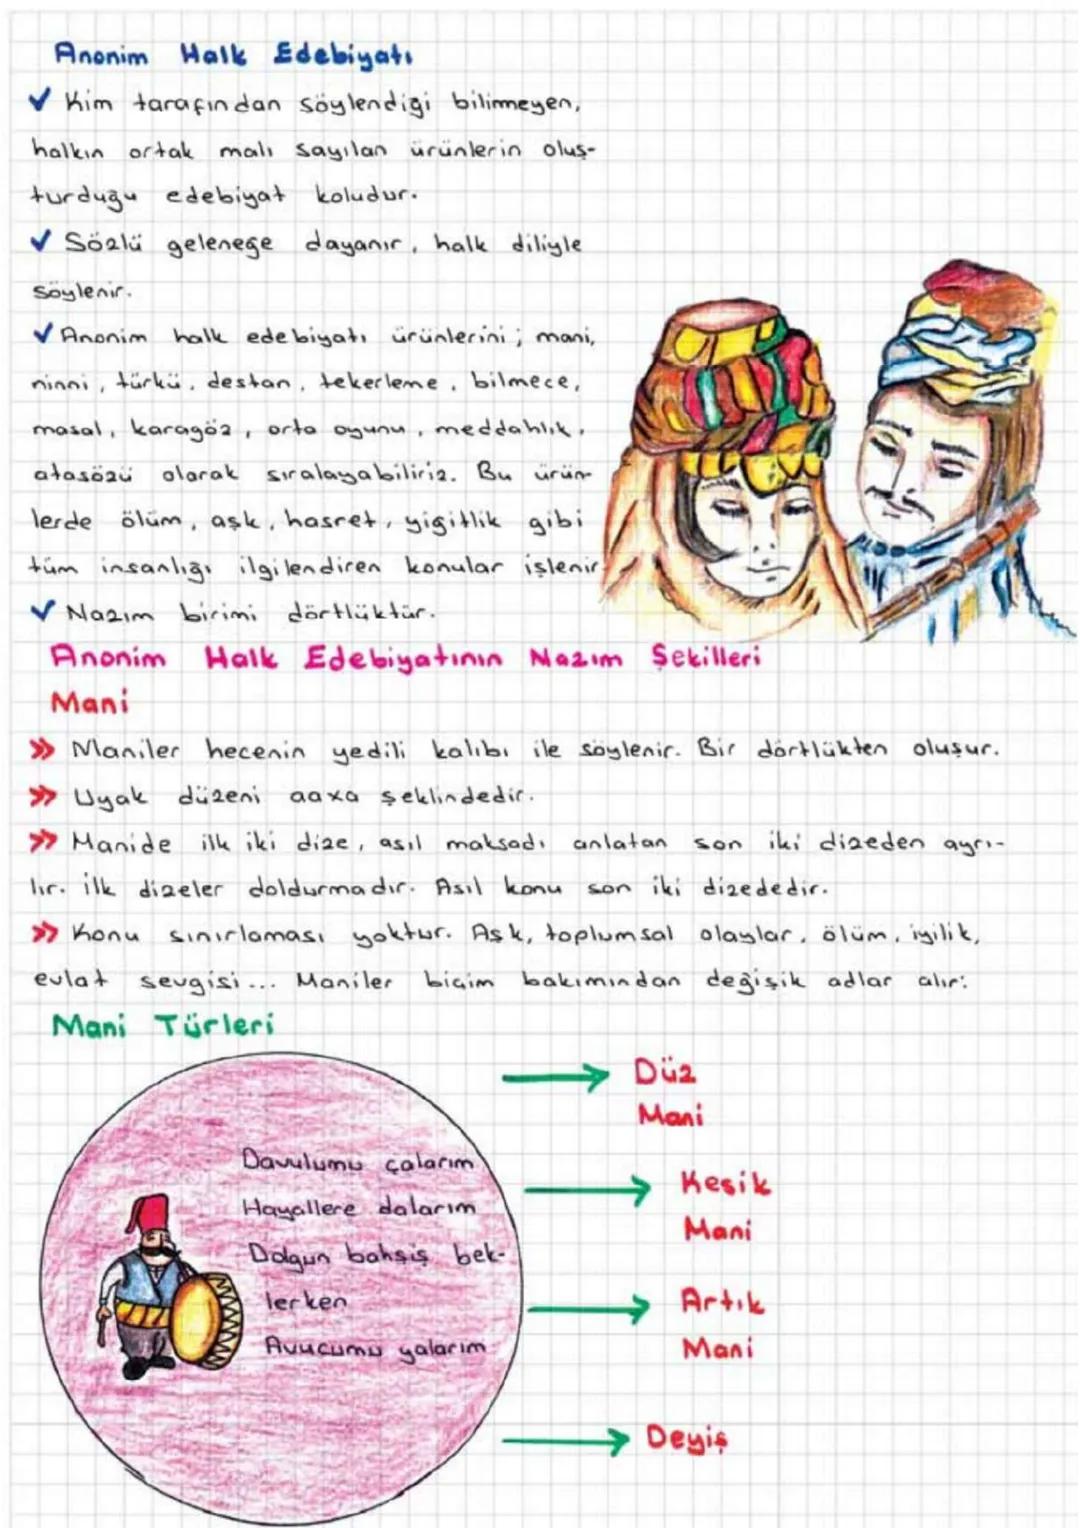 Anonim Halk Edebiyatı
✓ Kim tarafından söylendiği bilinmeyen,
halkın ortak malı sayılan ürünlerin oluş-
turduğu edebiyat koludur.
✓ Sözlü geleneğe dayanır, halk diliyle
söylenir.
✓ Anonim halk edebiyatı ürünlerini; mani,
ninni, türkü, destan, tekerleme, bilmece,
masal, karagöz, orta oyunu, meddahlık,
atasözü olarak sıralayabiliriz. Bu ürün-
lerde ölüm, aşk, hasret, yiğitlik gibi
tüm insanlığı ilgilendiren konular işlenir
✓ Nazım birimi dörtlüktür.
Anonim Halk Edebiyatının Nazım Şekilleri
Mani
>> Maniler hecenin yedili kalıbı ile söylenir. Bir dörtlükten oluşur.
>> Uyak düzeni aaxa şeklindedir.
>> Manide ilk iki dize, asıl maksadı anlatan son iki dizeden ayrı-
lır. ilk dizeler doldurmadır. Asıl konu son iki dizededir.
>> Konu sınırlaması yoktur. Aşk, toplumsal olaylar, ölüm, iyilik,
evlat sevgisi... Maniler biçim bakımından değişik adlar alır:
Mani Türleri
Davulumu çalarım
Hayallere dalarım
Dolgun bahşiş bek-
lerken
Avucumu yalarım
Düz
Mani
Kesik
Mani
Artık
Mani
Deyiş